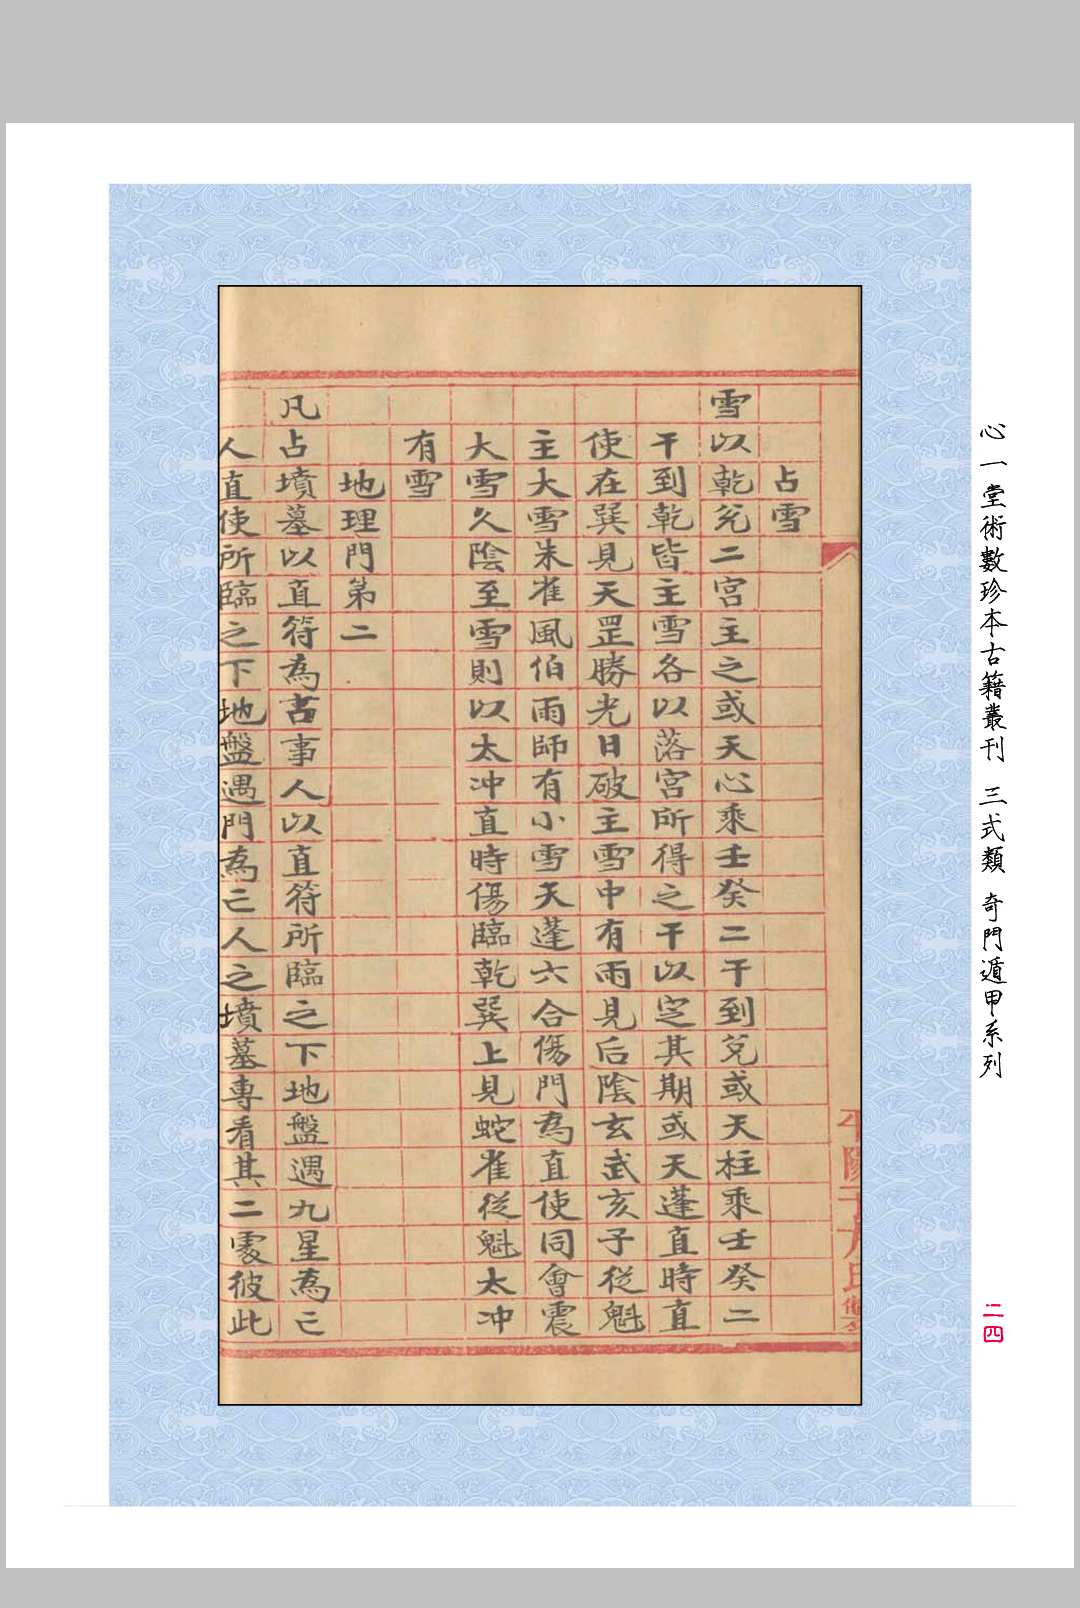 占雪
雪以乾兌二宮主之或天心乘壬癸二干到兌或天柱乘壬癸二
干到乾皆主雪各以落宮所得之干以定其期或天蓬直時直
使在巽見天罡勝光日破主雪中有雨見后陰玄武亥子從魁
主大雪朱雀風伯雨師有小雪天蓬六合傷門為直使同會震
大雪久陰至雪則以太冲直時傷臨乾巽上見蛇雀從魁太冲
有雪
地理門第二
凡占墳墓以直符為吉事人以直符所臨之下地盤遇九星為亡
人直使所臨之下地盤遇門為亡人之墳墓專看其二處彼此
心一堂術數珍本古籍叢刊 三式類 奇門遁甲系列
二四